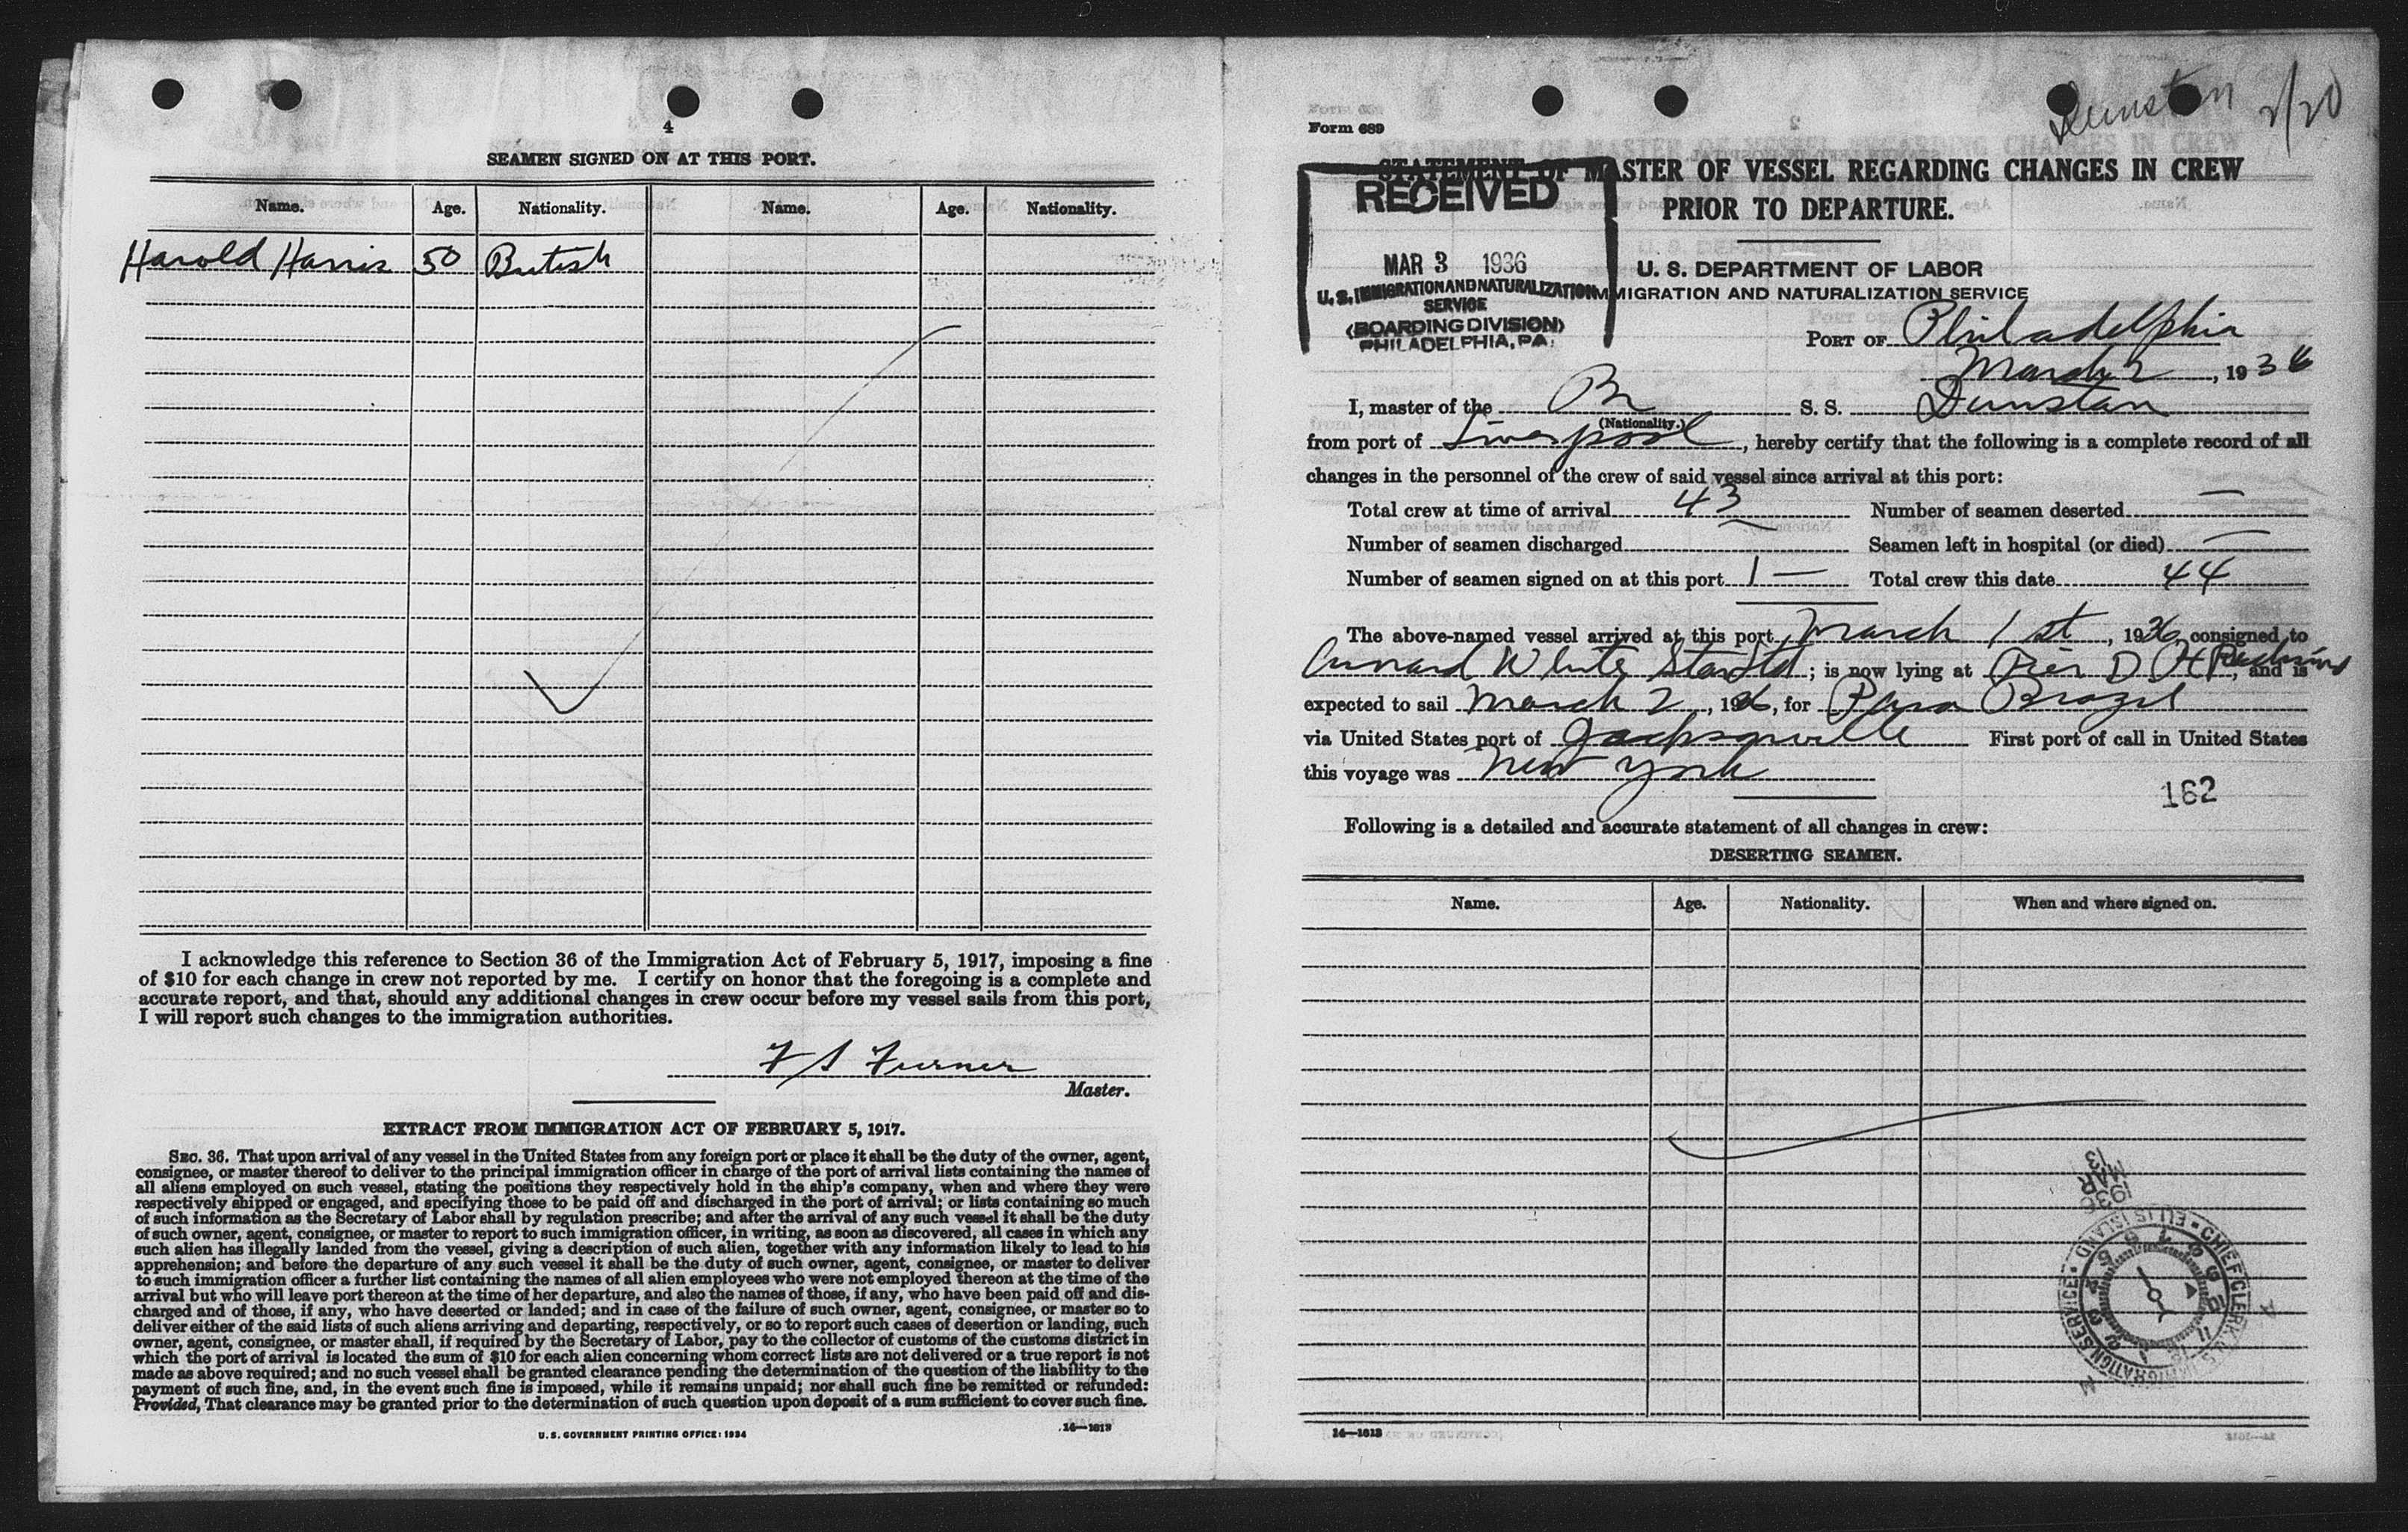 4
SEAMEN SIGNED ON AT THIS PORT.
Name. Age. Nationality. Name. Age. Nationality.
Harold Harris 50 British
I acknowledge this reference to Section 36 of the Immigration Act of February 5, 1917, imposing a fine
of $10 for each change in crew not reported by me. I certify on honor that the foregoing is a complete and
accurate report, and that, should any additional changes in crew occur before my vessel sails from this port,
I will report such changes to the immigration authorities.
F S Furner
Master.
EXTRACT FROM IMMIGRATION ACT OF FEBRUARY 5, 1917.
SEC. 36. That upon arrival of any vessel in the United States from any foreign port or place it shall be the duty of the owner, agent,
consignee, or master thereof to deliver to the principal immigration officer in charge of the port of arrival lists containing the names of
all aliens employed on such vessel, stating the positions they respectively hold in the ship's company, when and where they were
respectively shipped or engaged, and specifying those to be paid off and discharged in the port of arrival; or lists containing so much
of such information as the Secretary of Labor shall by regulation prescribe; and after the arrival of any such vessel it shall be the duty
of such owner, agent, consignee, or master to report to such immigration officer, in writing, as soon as discovered, all cases in which any
such alien has illegally landed from the vessel, giving a description of such alien, together with any information likely to lead to his
apprehension; and before the departure of any such vessel it shall be the duty of such owner, agent, consignee, or master to deliver
to such immigration officer a further list containing the names of all alien employees who were not employed thereon at the time of the
arrival but who will leave port thereon at the time of her departure, and also the names of those, if any, who have been paid off and dis-
charged and of those, if any, who have deserted or landed; and in case of the failure of such owner, agent, consignee, or master so to
deliver either of the said lists of such aliens arriving and departing, respectively, or so to report such cases of desertion or landing, such
owner, agent, consignee, or master shall, if required by the Secretary of Labor, pay to the collector of customs of the customs district in
which the port of arrival is located the sum of $10 for each alien concerning whom correct lists are not delivered or a true report is not
made as above required; and no such vessel shall be granted clearance pending the determination of the question of the liability to the
payment of such fine, and, in the event such fine is imposed, while it remains unpaid; nor shall such fine be remitted or refunded:
Provided, That clearance may be granted prior to the determination of such question upon deposit of a sum sufficient to cover such fine.
U. S. GOVERNMENT PRINTING OFFICE: 1934 14—1613
Dunstan 2/20
Form 689
STATEMENT OF MASTER OF VESSEL REGARDING CHANGES IN CREW
PRIOR TO DEPARTURE.
RECEIVED
MAR 3 1936
U. S. IMMIGRATION AND NATURALIZATION
SERVICE
(BOARDING DIVISION)
PHILADELPHIA, PA.
U. S. DEPARTMENT OF LABOR
IMMIGRATION AND NATURALIZATION SERVICE
PORT OF Philadelphia
March 2, 1936
I, master of the Br S. S. Dunstan
(Nationality.)
from port of Liverpool, hereby certify that the following is a complete record of all
changes in the personnel of the crew of said vessel since arrival at this port:
Total crew at time of arrival 43 Number of seamen deserted —
Number of seamen discharged Seamen left in hospital (or died) —
Number of seamen signed on at this port 1 — Total crew this date 44
The above-named vessel arrived at this port March 1st, 1936, consigned to
Cunard White Star Ltd; is now lying at Pier D Pt Richmond, and is
expected to sail March 2, 1936, for Para Brazil
via United States port of Jacksonville First port of call in United States
this voyage was New York
162
Following is a detailed and accurate statement of all changes in crew:
DESERTING SEAMEN.
Name. Age. Nationality. When and where signed on.
1936
MAR
13
CHIEF CLERK, U. S. IMMIGRATION SERVICE • ELLIS ISLAND
14—1613